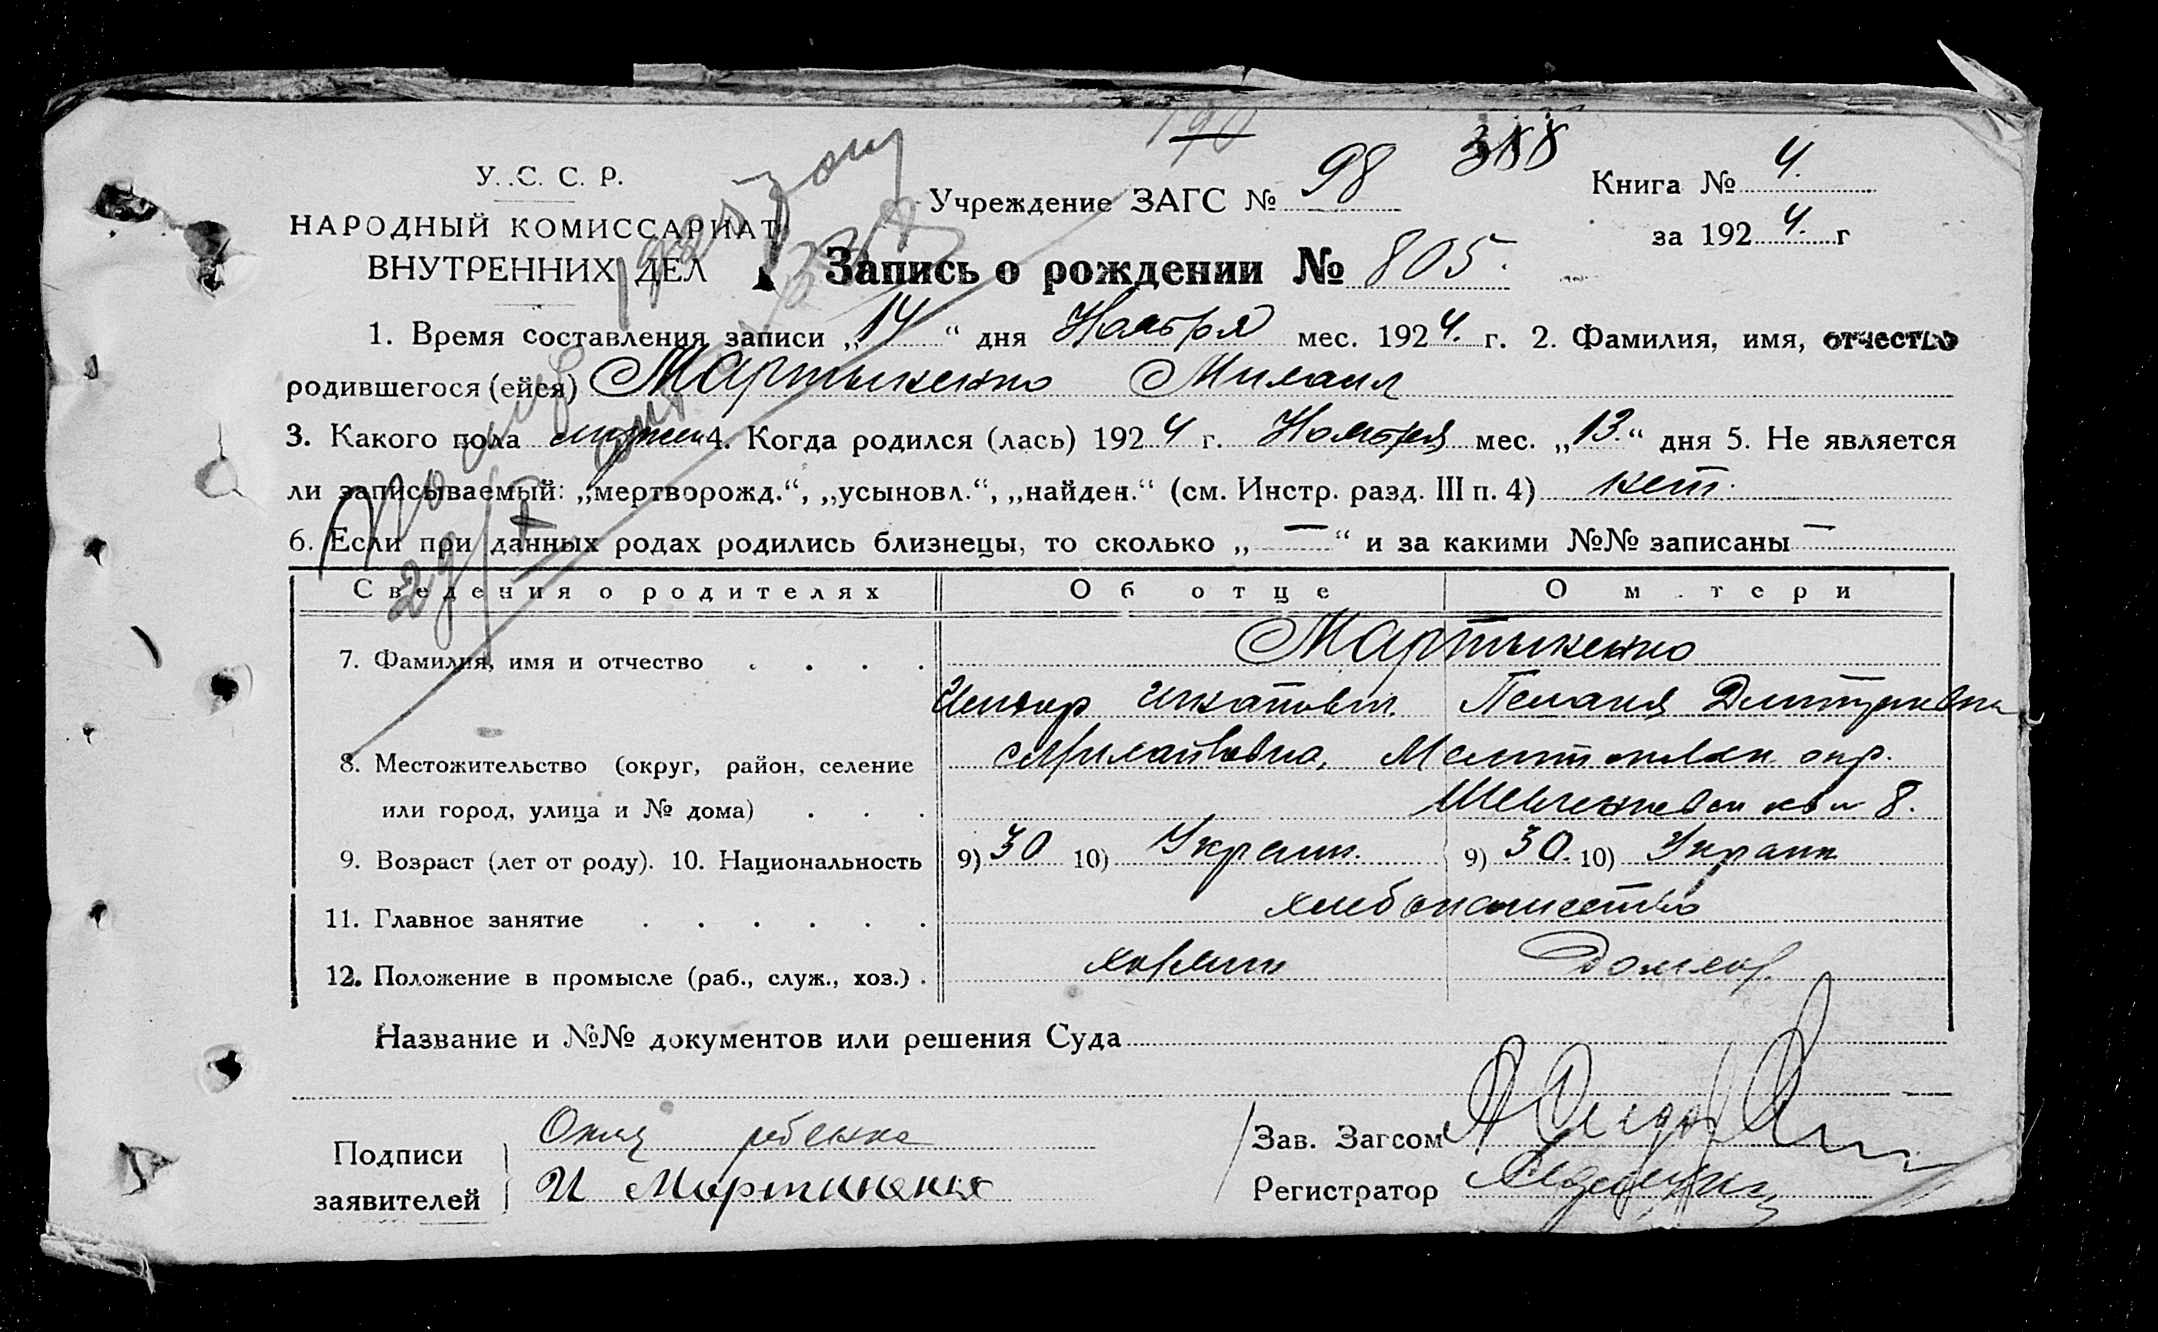 190
У. С. С. Р.
НАРОДНЫЙ КОМИССАРИАТ
ВНУТРЕННИХ ДЕЛ
Учреждение ЗАГС № 98 388
Книга № 4.
за 1924. г
Запись о рождении № 805.
1. Время составления записи „14“ дня Ноября мес. 1924. г. 2. Фамилия, имя, отчество
родившегося (ейся) Мартыненко Михаил
3. Какого пола мужск 4. Когда родился (лась) 1924 г. Ноября мес. „13.“ дня 5. Не является
ли записываемый: „мертворожд.“, „усыновл.“, „найден.“ (см. Инстр. разд. III п. 4) нет.
6. Если при данных родах родились близнецы, то сколько „—“ и за какими №№ записаны —
Сведения о родителях Об отце О м тери
7. Фамилия, имя и отчество Мартыненко
Пелагия Дмитриевна
8. Местожительство (округ, район, селение
или город, улица и № дома) 8.
9. Возраст (лет от роду). 10. Национальность 9) 30 10) Украин. 9) 30. 10) Украин
11. Главное занятие хлебопашество
12. Положение в промысле (раб., служ., хоз.) хозяин Домхоз.
Название и №№ документов или решения Суда
Подписи
заявителей
Отец ребенка
И Мартиненко
Зав. Загсом
Регистратор